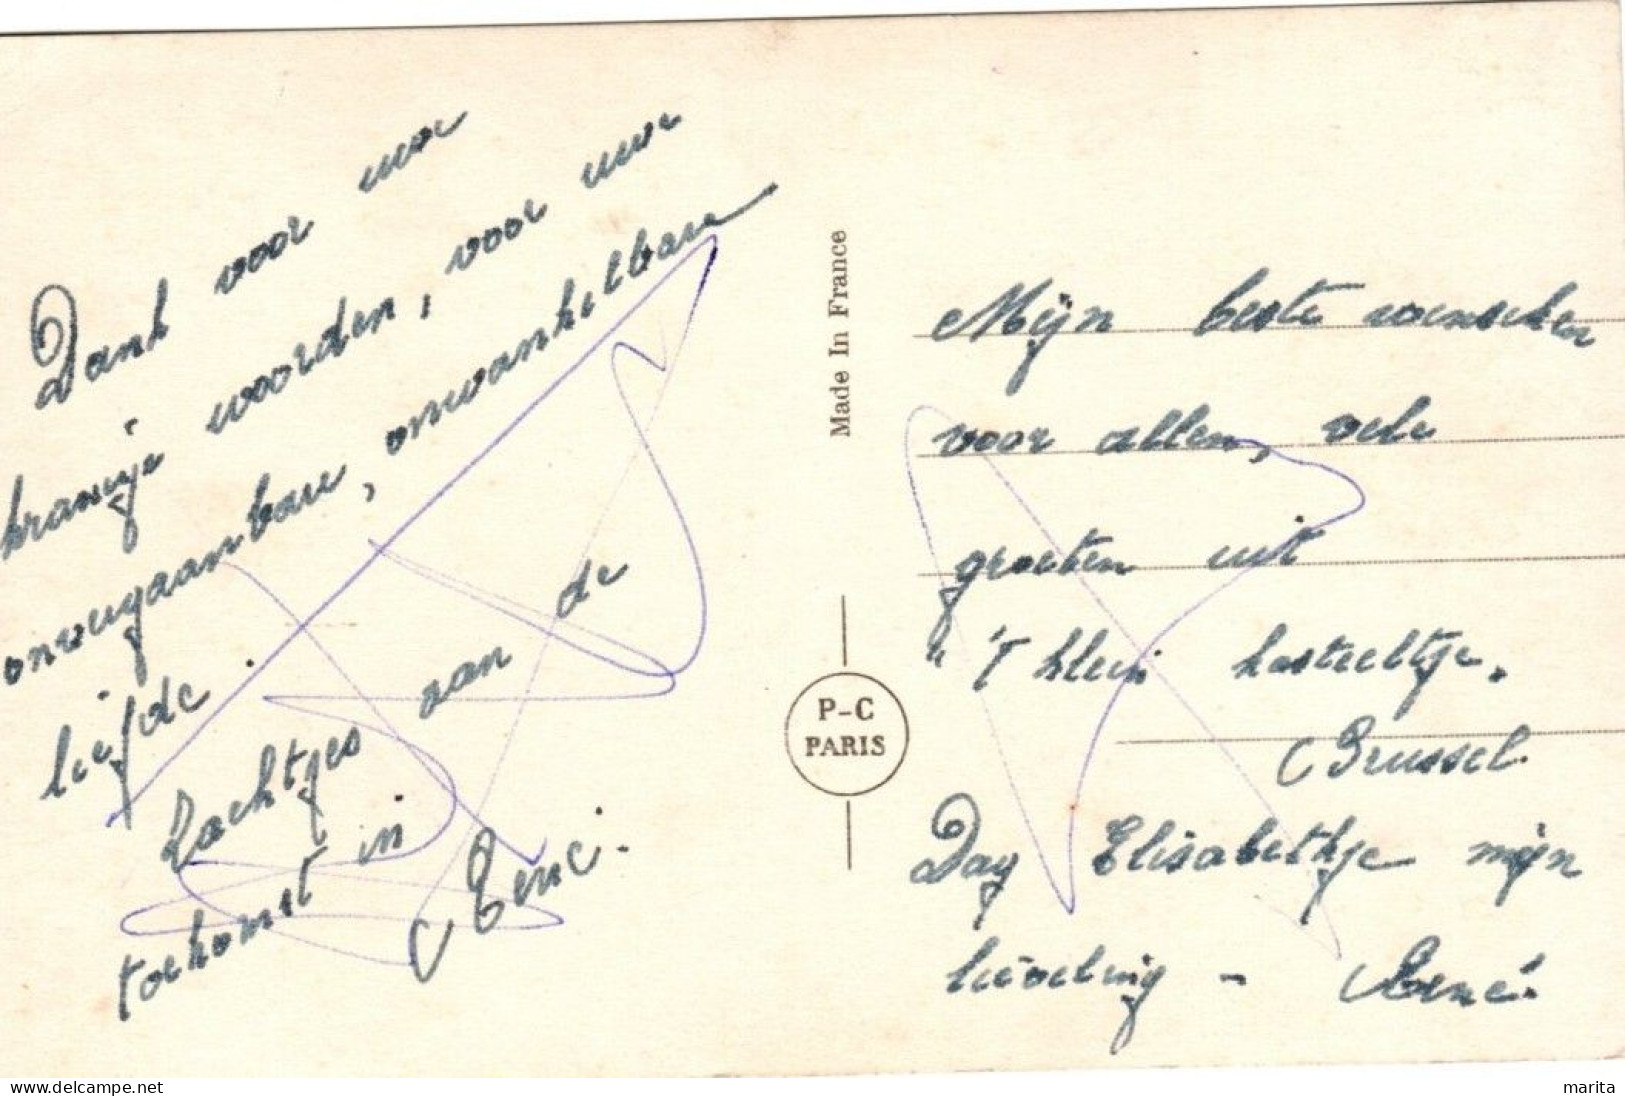 Dank voor uwe
kranige woorden, voor uwe
onweegaanbare, onwankelbare
liefde
Zachtjes aan de
toekomst in
René.
Made In France
P-C
PARIS
Mijn beste wenschen
voor allen, vele
groeten uit
"'T klein kasteeltje.
Brussel.
Dag Elisabethje mijn
lieveling - René.
delcampe.net
marita